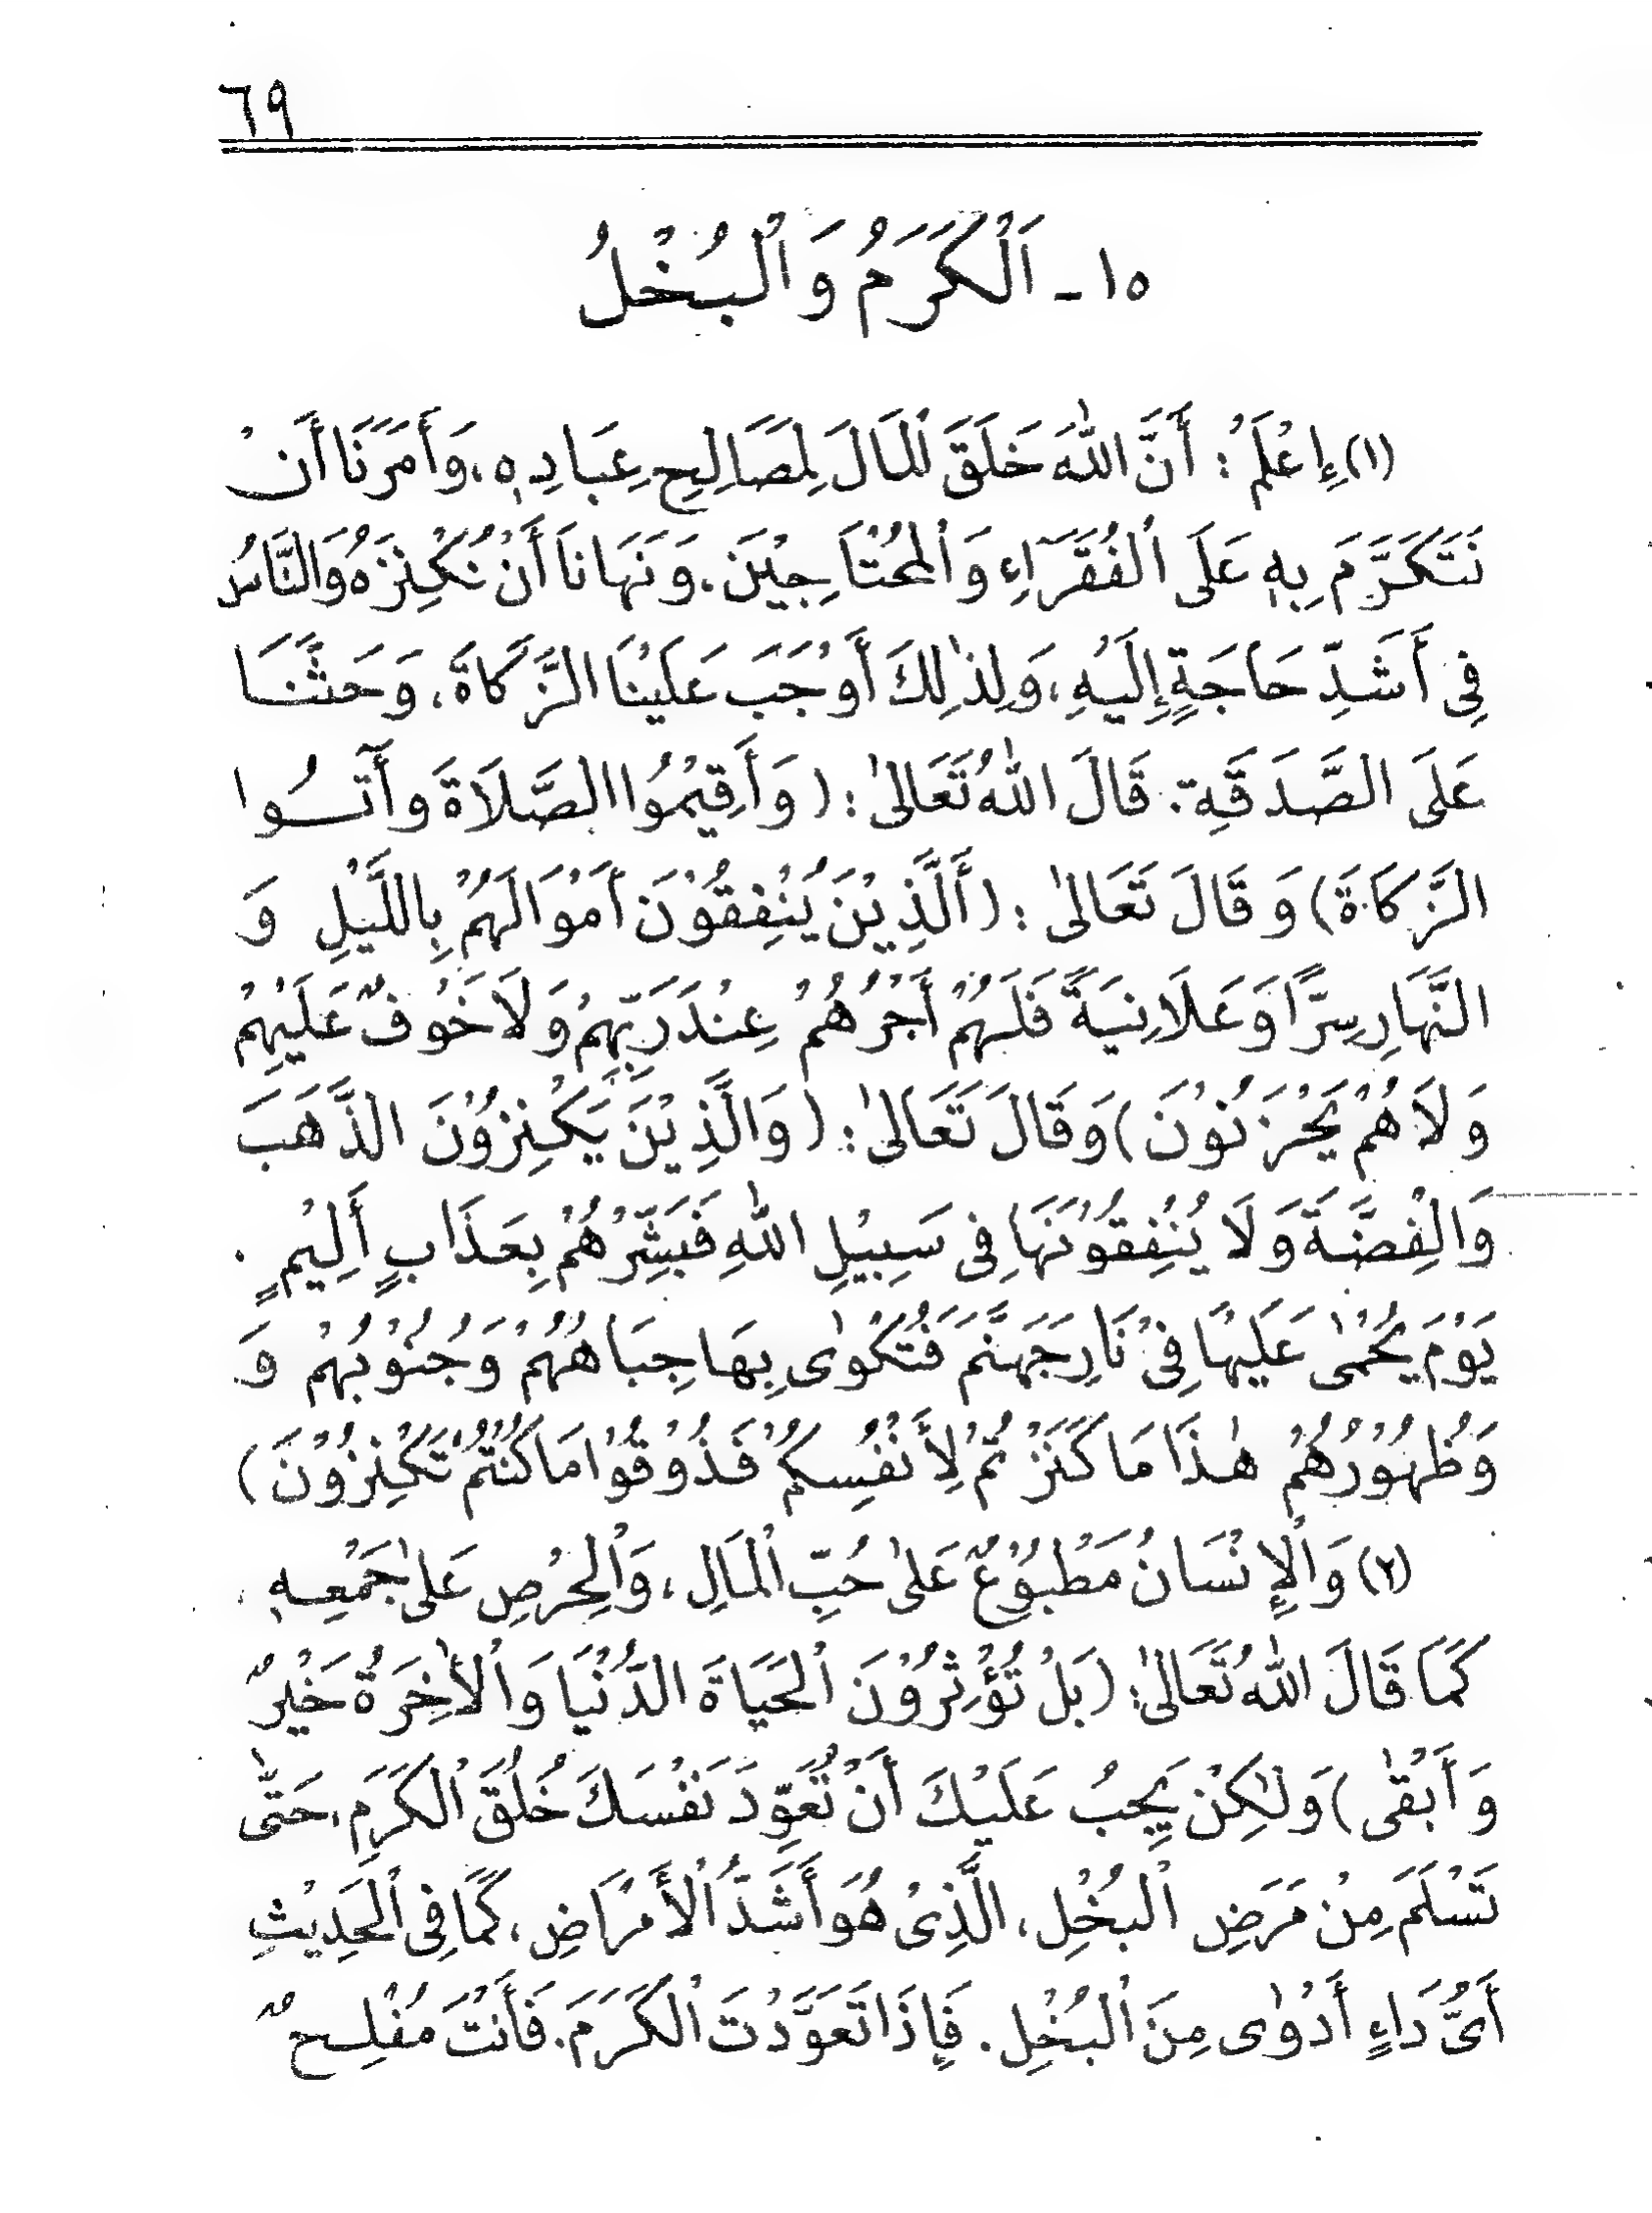 ٦٩
١٥- اَلْكَرَمُ وَالْبُخْلُ
(١) إِعْلَمْ: أَنَّ اللّٰهَ خَلَقَ الْمَالَ لِمَصَالِحِ عِبَادِهِ، وَأَمَرَنَا أَنْ
نَتَكَرَّمَ بِهِ عَلَى الْفُقَرَآءِ وَالْمُحْتَاجِيْنَ. وَنَهَانَا أَنْ نَكْنِزَهُ وَالنَّاسُ
فِى أَشَدِّ حَاجَةٍ إِلَيْهِ، وَلِذٰلِكَ أَوْجَبَ عَلَيْنَا الزَّكَاةَ، وَحَثَّنَا
عَلَى الصَّدَقَةِ. قَالَ اللّٰهُ تَعَالىٰ: (وَأَقِيْمُوا الصَّلَاةَ وآتُوا
الزَّكَاةَ) وَقَالَ تَعَالىٰ: (أَلَّذِيْنَ يُنْفِقُوْنَ أَمْوَالَهُمْ بِاللَّيْلِ وَ
النَّهَارِ سِرًّا وَعَلَانِيَةً فَلَهُمْ أَجْرُهُمْ عِنْدَ رَبِّهِمْ وَلَا خَوْفٌ عَلَيْهِمْ
وَلَا هُمْ يَحْزَنُوْنَ) وَقَالَ تَعَالىٰ: (وَالَّذِيْنَ يَكْنِزُوْنَ الذَّهَبَ
وَالْفِضَّةَ وَلَا يُنْفِقُوْنَهَا فِى سَبِيْلِ اللّٰهِ فَبَشِّرْهُمْ بِعَذَابٍ أَلِيْمٍ.
يَوْمَ يُحْمٰى عَلَيْهَا فِىْ نَارِ جَهَنَّمَ فَتُكْوٰى بِهَا جِبَاهُهُمْ وَجُنُوْبُهُمْ وَ
وَظُهُوْرُهُمْ هٰذَا مَا كَنَزْتُمْ لِأَنْفُسِكُمْ فَذُوْقُوْا مَا كُنْتُمْ تَكْنِزُوْنَ)
(٢) وَالْإِنْسَانُ مَطْبُوْعٌ عَلىٰ حُبِّ الْمَالِ، وَالْحِرْصِ عَلىٰ جَمْعِهِ،
كَمَا قَالَ اللّٰهُ تَعَالىٰ: (بَلْ تُؤْثِرُوْنَ الْحَيَاةَ الدُّنْيَا وَالْاٰخِرَةُ خَيْرٌ
وَأَبْقٰى) وَلٰكِنْ يَجِبُ عَلَيْكَ أَنْ تُعَوِّدَ نَفْسَكَ خُلُقَ الْكَرَمِ، حَتّٰى
تَسْلَمَ مِنْ مَرَضِ الْبُخْلِ، الَّذِىْ هُوَ أَشَدُّ الْأَمْرَاضِ، كَمَا فِى الْحَدِيْثِ
أَىُّ دَاءٍ أَدْوٰى مِنَ الْبُخْلِ. فَإِذَا تَعَوَّدْتَ الْكَرَمَ. فَأَنْتَ مُفْلِحٌ